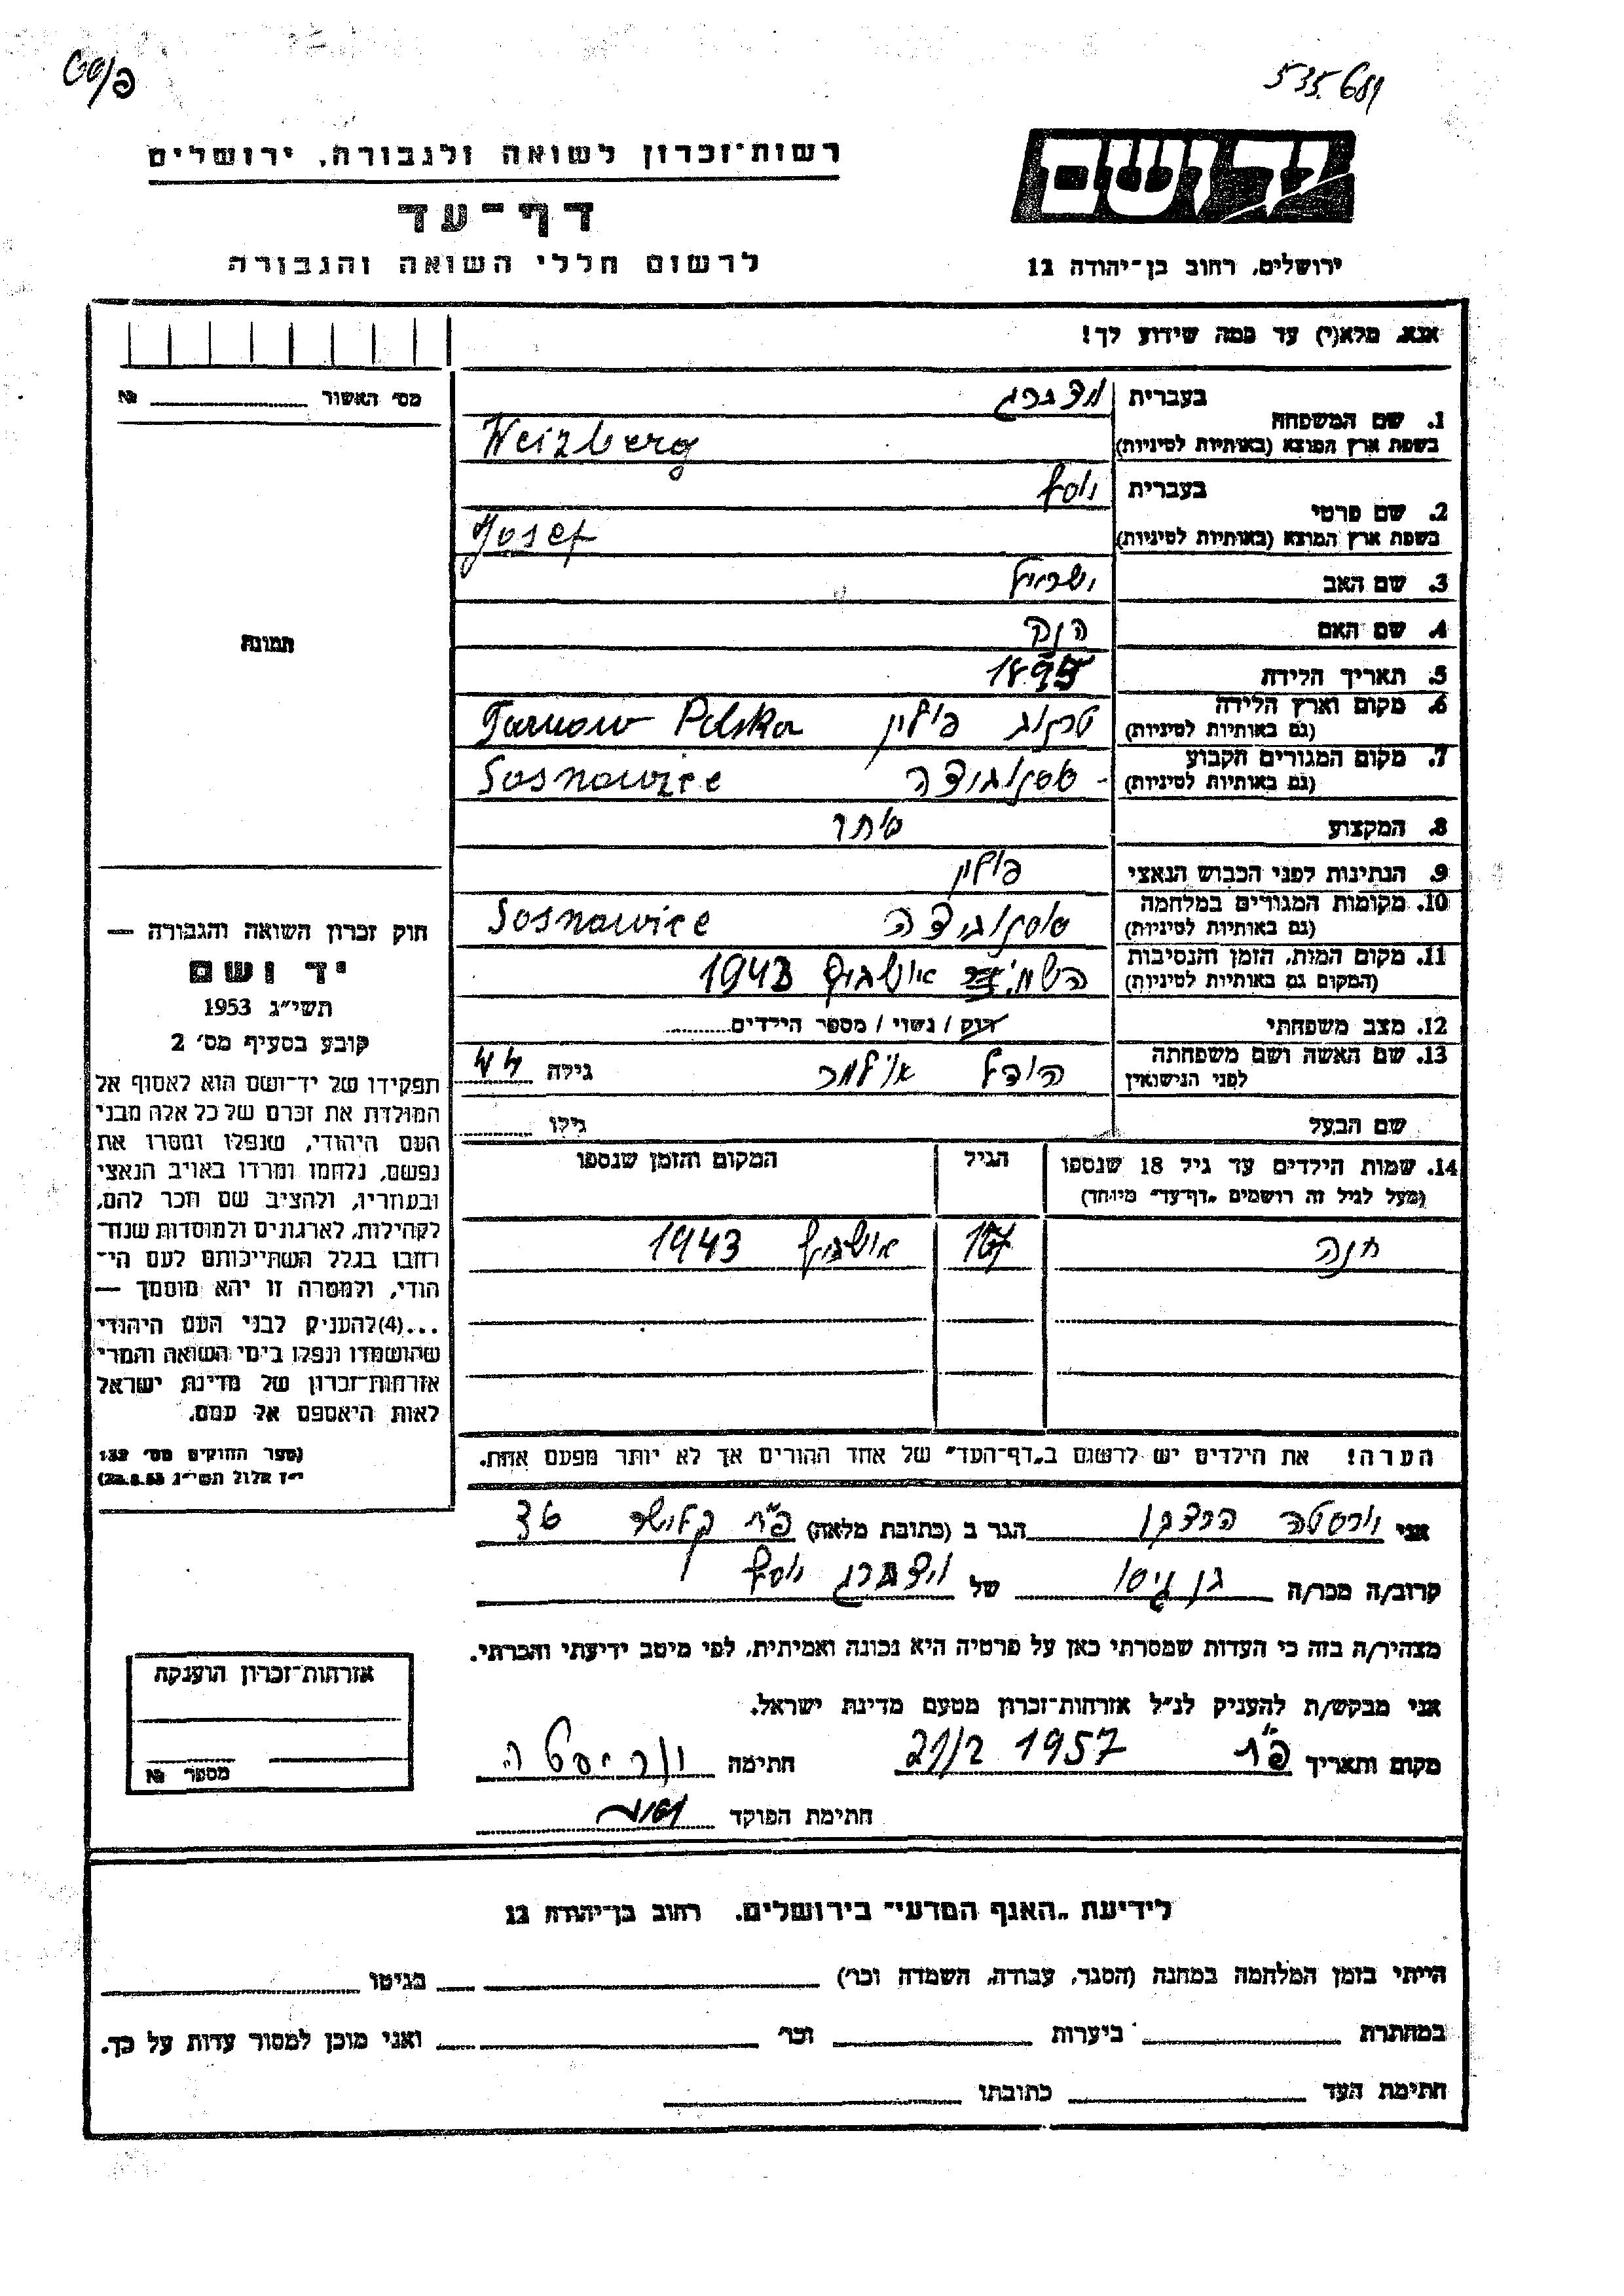 535.689
רשות־זכרון לשואה ולגבורה, ירושלים
דף־עד
לרשום חללי השואה והגבורה
יד ושם
ירושלים, רחוב בן־יהודה 12
אנא, מלא(י) עד כמה שידוע לך!
מס׳ האשור № 
1. שם המשפחה בעברית
בשפת ארץ המוצא (באותיות לטיניות) Weizberg
2. שם פרטי בעברית יוסף
בשפת ארץ המוצא (באותיות לטיניות) Josef
3. שם האב ישראל
4. שם האם
5. תאריך הלידה 1895
6. מקום וארץ הלידה
(גם באותיות לטיניות) טרנוב פולין Tarnow Polska
7. מקום המגורים הקבוע
(גם באותיות לטיניות) סוסנוביצה Sosnowice
8. המקצוע סוחר
9. הנתינות לפני הכבוש הנאצי פולין
10. מקומות המגורים במלחמה
(גם באותיות לטיניות) סוסנוביצה Sosnowice
11. מקום המות, הזמן והנסיבות
(המקום גם באותיות לטיניות) אושויץ 1943
12. מצב משפחתי רווק / נשוי / מספר הילדים
13. שם האשה ושם משפחתה
לפני הנישואין הודל גילה 44
שם הבעל גילו
14. שמות הילדים עד גיל 18 שנספו הגיל המקום והזמן שנספו
(מעל לגיל זה רושמים „דף־עד״ מיוחד)
חנה אושויץ 1943
הערה! את הילדים יש לרשום ב„דף־העד״ של אחד ההורים אך לא יותר מפעם אחת.
תמונה
חוק זכרון השואה והגבורה —
יד ושם
תשי״ג 1953
קובע בסעיף מס׳ 2
תפקידו של יד־ושם הוא לאסוף אל
המולדת את זכרם של כל אלה מבני
העם היהודי, שנפלו ומסרו את
נפשם, נלחמו ומרדו באויב הנאצי
ובעוזריו, ולהציב שם וזכר להם,
לקהילות, לארגונים ולמוסדות שנח־
רבו בגלל השתייכותם לעם הי־
הודי, ולמטרה זו יהא מוסמך —
...(4) להעניק לבני העם היהודי
שהושמדו ונפלו בימי השואה והמרי
אזרחות־זכרון של מדינת ישראל
לאות היאספם אל עמם.
(ספר החוקים מס׳ 132
י״ז אלול תשי״ג 28.8.53)
אני הגר ב (כתובת מלאה) פ״ת
קרוב/ה מכר/ה של יוסף
מצהיר/ה בזה כי העדות שמסרתי כאן על פרטיה היא נכונה ואמיתית, לפי מיטב ידיעתי והכרתי.
אני מבקש/ת להעניק לנ״ל אזרחות־זכרון מטעם מדינת ישראל.
מקום ותאריך פ״ת 21/2 1957 חתימה
חתימת הפוקד
אזרחות־זכרון הוענקה
מספר №
לידיעת „האגף המדעי״ בירושלים, רחוב בן־יהודה 12
הייתי בזמן המלחמה במחנה (הסגר, עבודה, השמדה וכו׳) בגיטו
במחתרת ביערות וכו׳ ואני מוכן למסור עדות על כך.
חתימת העד כתובתו